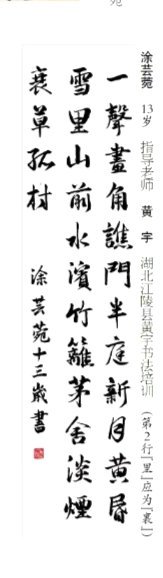 涂芸菀 13岁 指导老师 黄宇 湖北江陵县黄宇书法培训 (第2行『里』应为『裏』)
一聲畫角譙門半庭新月黄昏
雪里山前水濱竹籬茅舍淡煙
衰草孤村
涂芸菀十三歲書